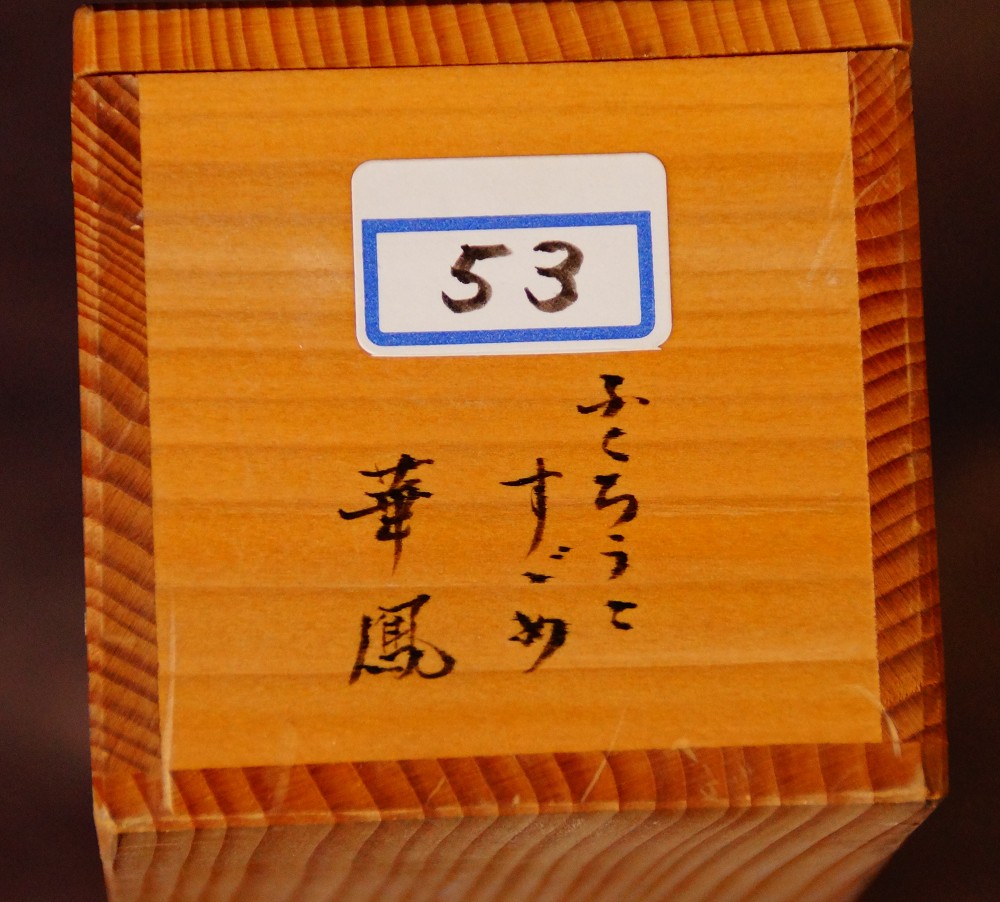 53
ふくろうと
すゞめ
華鳳